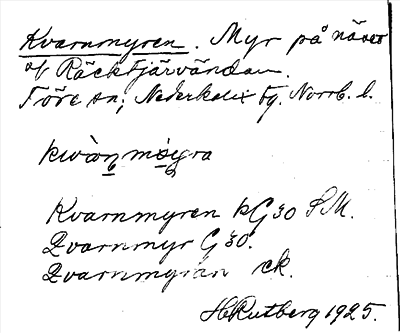 Kvarnmyren. Myr på näset
v/ Räcktjärvändan.
Töre sn; Nederkalix tg. Norrb. l.
Kvarnmyren kG 30 S.M.
Qvarnmyr G 30.
Qvarnmyran ck.
H Rutberg 1925.